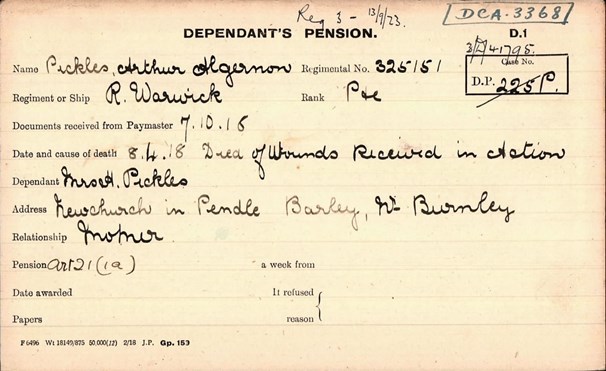 Reg 3 - 13/9/23.
DCA-3368
DEPENDANT'S PENSION.
D.1
3/2/41795.
Case No.
Name Pickles, Arthur Algernon Regimental No. 325151
D.P. 225P.
Regiment or Ship R. Warwick Rank Pte
Documents received from Paymaster 7.10.18
Date and cause of death 8.4.18 Died of Wounds Received in Action
Dependant Mrs H. Pickles
Address Newchurch in Pendle Barley, Nr Burnley
Relationship Mother.
Pension Art 21 (1a) a week from
Date awarded It refused
Papers reason
F 6496 Wt 18149/875 50,000(17) 2/18 J.P. Gp. 153